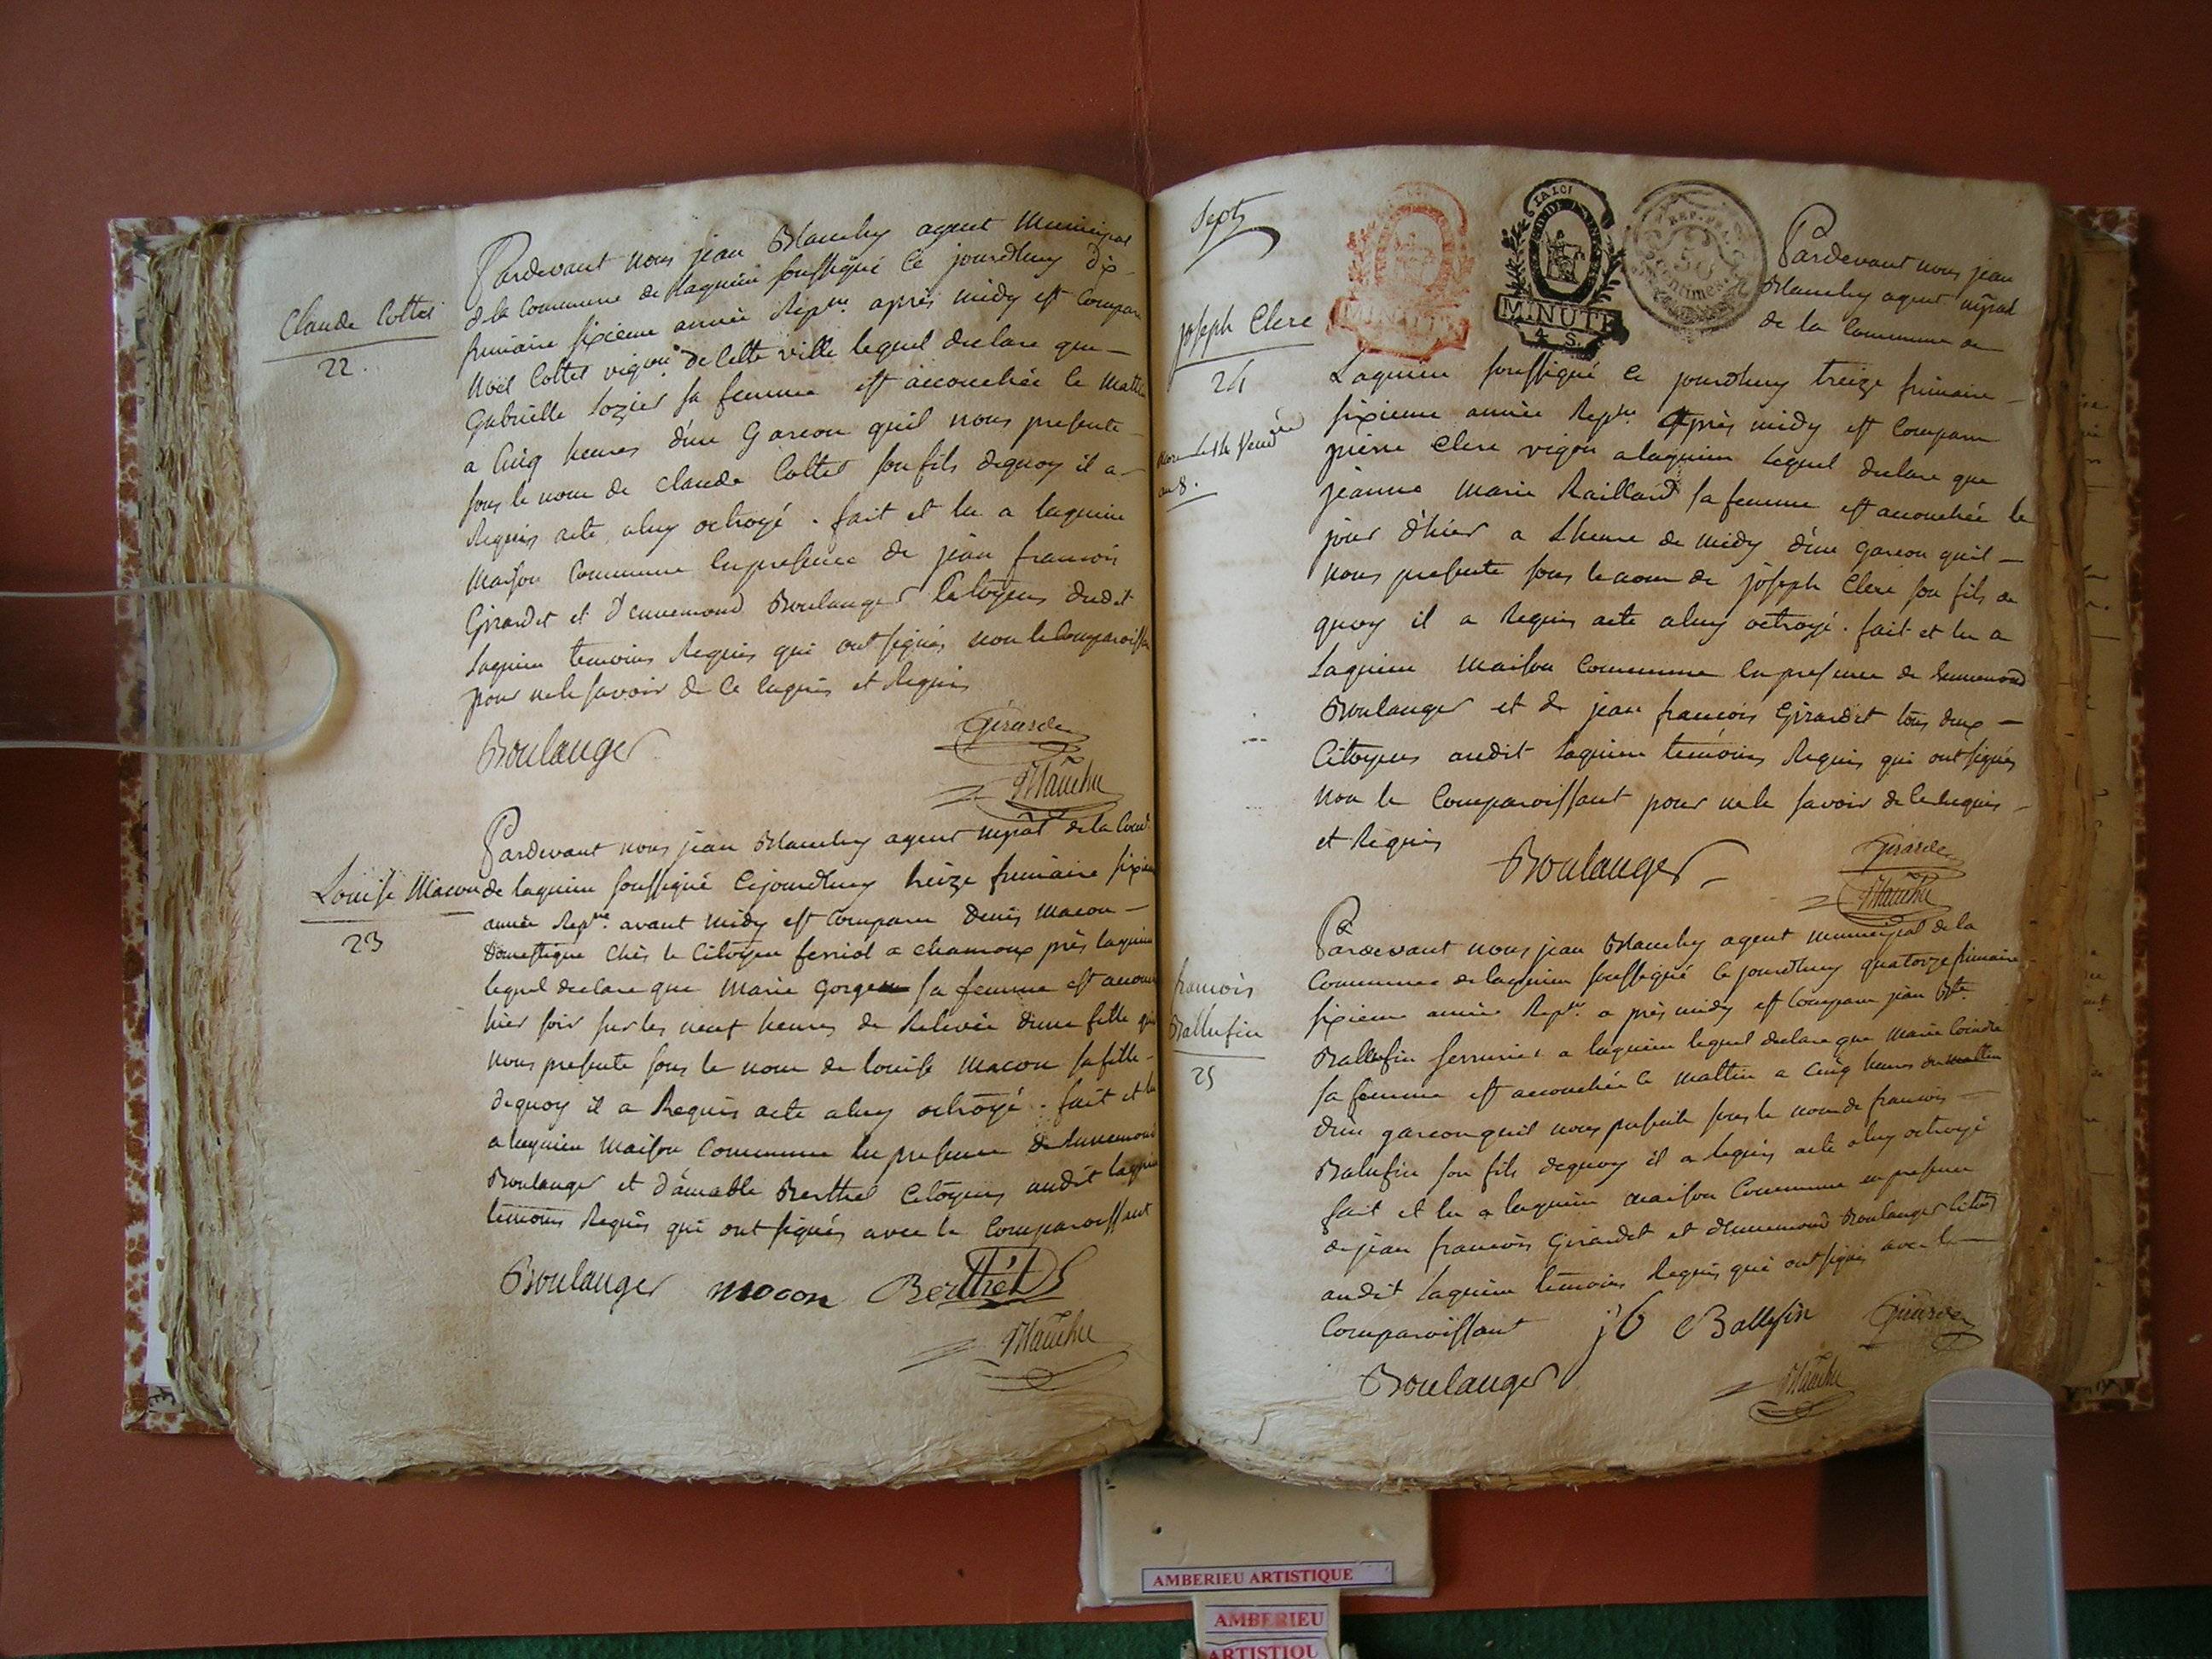 Claude Cottet
22.
Pardevant nous jean Blanchy agent Municipal
de la Commune de Lagnieu soussigné Ce jourdhuy dix
frimaire sixieme année Repne. après midy est Comparu
Noël Cottet vigon de Cette ville lequel declare que
Gabrielle Lozier sa femme est accouchée le mattin
a Cinq heures d'un Garcon quil nous presente
sous le nom de Claude Cottet son fils dequoy il a
Requis acte aluy octroyé. fait et lu a lagnieu
Maison Commune En presence de jean francois
Girardet et Dennemond Boulanger Citoyens dudit
Lagnieu temoins Requis qui ont signés non le Comparoissant
pour ne le savoir de Ce Enquis et Requis
Boulanger
Girardet
Blanchy
Louise Macon
23
Pardevant nous jean Blanchy agent mpal de la Comne
de lagnieu soussigné Cejourdhuy treize frimaire sixieme
année Repne. avant midy est Comparu Denis Macon
Domestique Chés le Citoyen ferriol a chamoux près lagnieu
lequel declare que Marie Gorgeu sa femme est accou
hier soir sur les neuf heures de Relevée d'une fille quil
nous presente sous le nom de louise Macon sa fille
dequoy il a Requis acte aluy octroyé. fait et lu
a lagnieu Maison Commune En presence Dennemond
Boulanger et d'amable Berthet Citoyens audit lagnieu
temoins Requis qui ont signés avec le Comparoissant
Boulanger mocon Berthet
Blanchy
Sept
LA LOI
MINUTE
MINUTE
4 S.
REP. FRA.
50
Centimes
joseph Clerc
24
mort le 14 Vendre
an 8.
Pardevant nous jean
Blanchy agent mpal
de la Commune de
Lagnieu soussigné Ce jourdhuy treize frimaire
sixieme année Repne. après midy est Comparu
pierre Clerc vigon a lagnieu Lequel declare que
jeanne Marie Raillard sa femme est accouchée le
jour d'hier a Lheure de midy d'un Garcon quil
nous presente sous le nom de joseph Clerc son fils de
quoy il a Requis acte aluy octroyé. fait et lu a
Lagnieu Maison Commune En presence de Dennemond
Boulanger et de jean francois Girardet tous deux
Citoyens audit Lagnieu temoins Requis qui ont signés
non le Comparoissant pour ne le savoir de Ce Enquis
et Requis
Boulanger
Girardet
Blanchy
francois
Ballufin
25
Pardevant nous jean Blanchy agent municipal de la
Commune de lagnieu soussigné Ce jourdhuy quatorze frimaire
sixieme année Repne. a près midy est Comparu jean Bte.
Ballufin serrurier a lagnieu lequel declare que Marie Cointre
sa femme est accouchée Ce mattin a Cinq heures du mattin
d'un garcon quil nous presente sous le nom de francois
Balufin son fils dequoy il a Requis acte aluy octroyé
fait et lu a lagnieu Maison Commune en presence
de jean francois Girardet et dennemond Boulanger Citoy
audit Lagnieu temoins Requis qui ont signés avec le
Comparoissant jb Ballufin Girardet
Boulanger
Blanchy
AMBERIEU ARTISTIQUE
AMBERIEU
ARTISTIQU